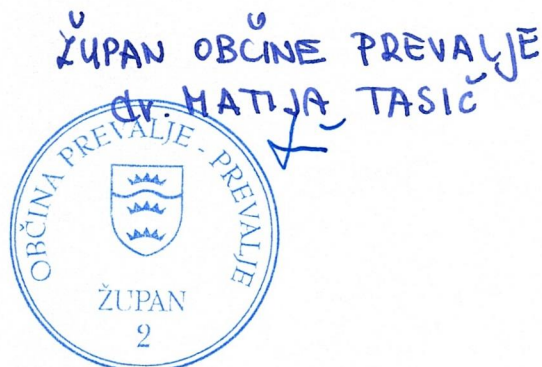 ŽUPAN OBČINE PREVALJE
dr. MATIJA TASIČ
OBČINA PREVALJE - PREVALJE
ŽUPAN
2